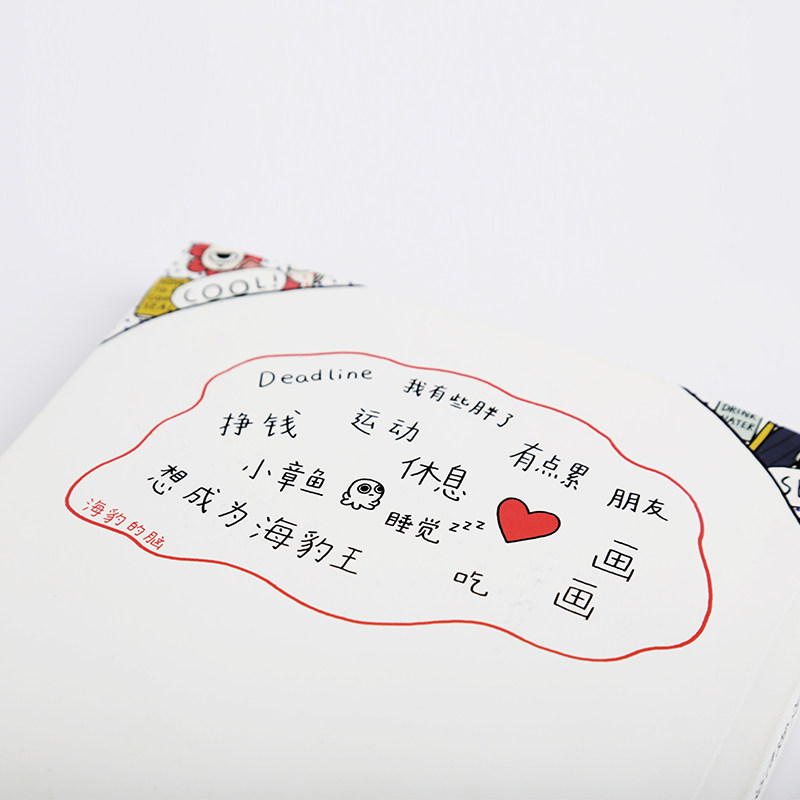 COOL!
DRINK
WATER
Deadline
我有些胖了
挣钱
运动
有点累
朋友
小章鱼
休息
想成为海豹王
睡觉zzz
画画
吃
海豹的脑